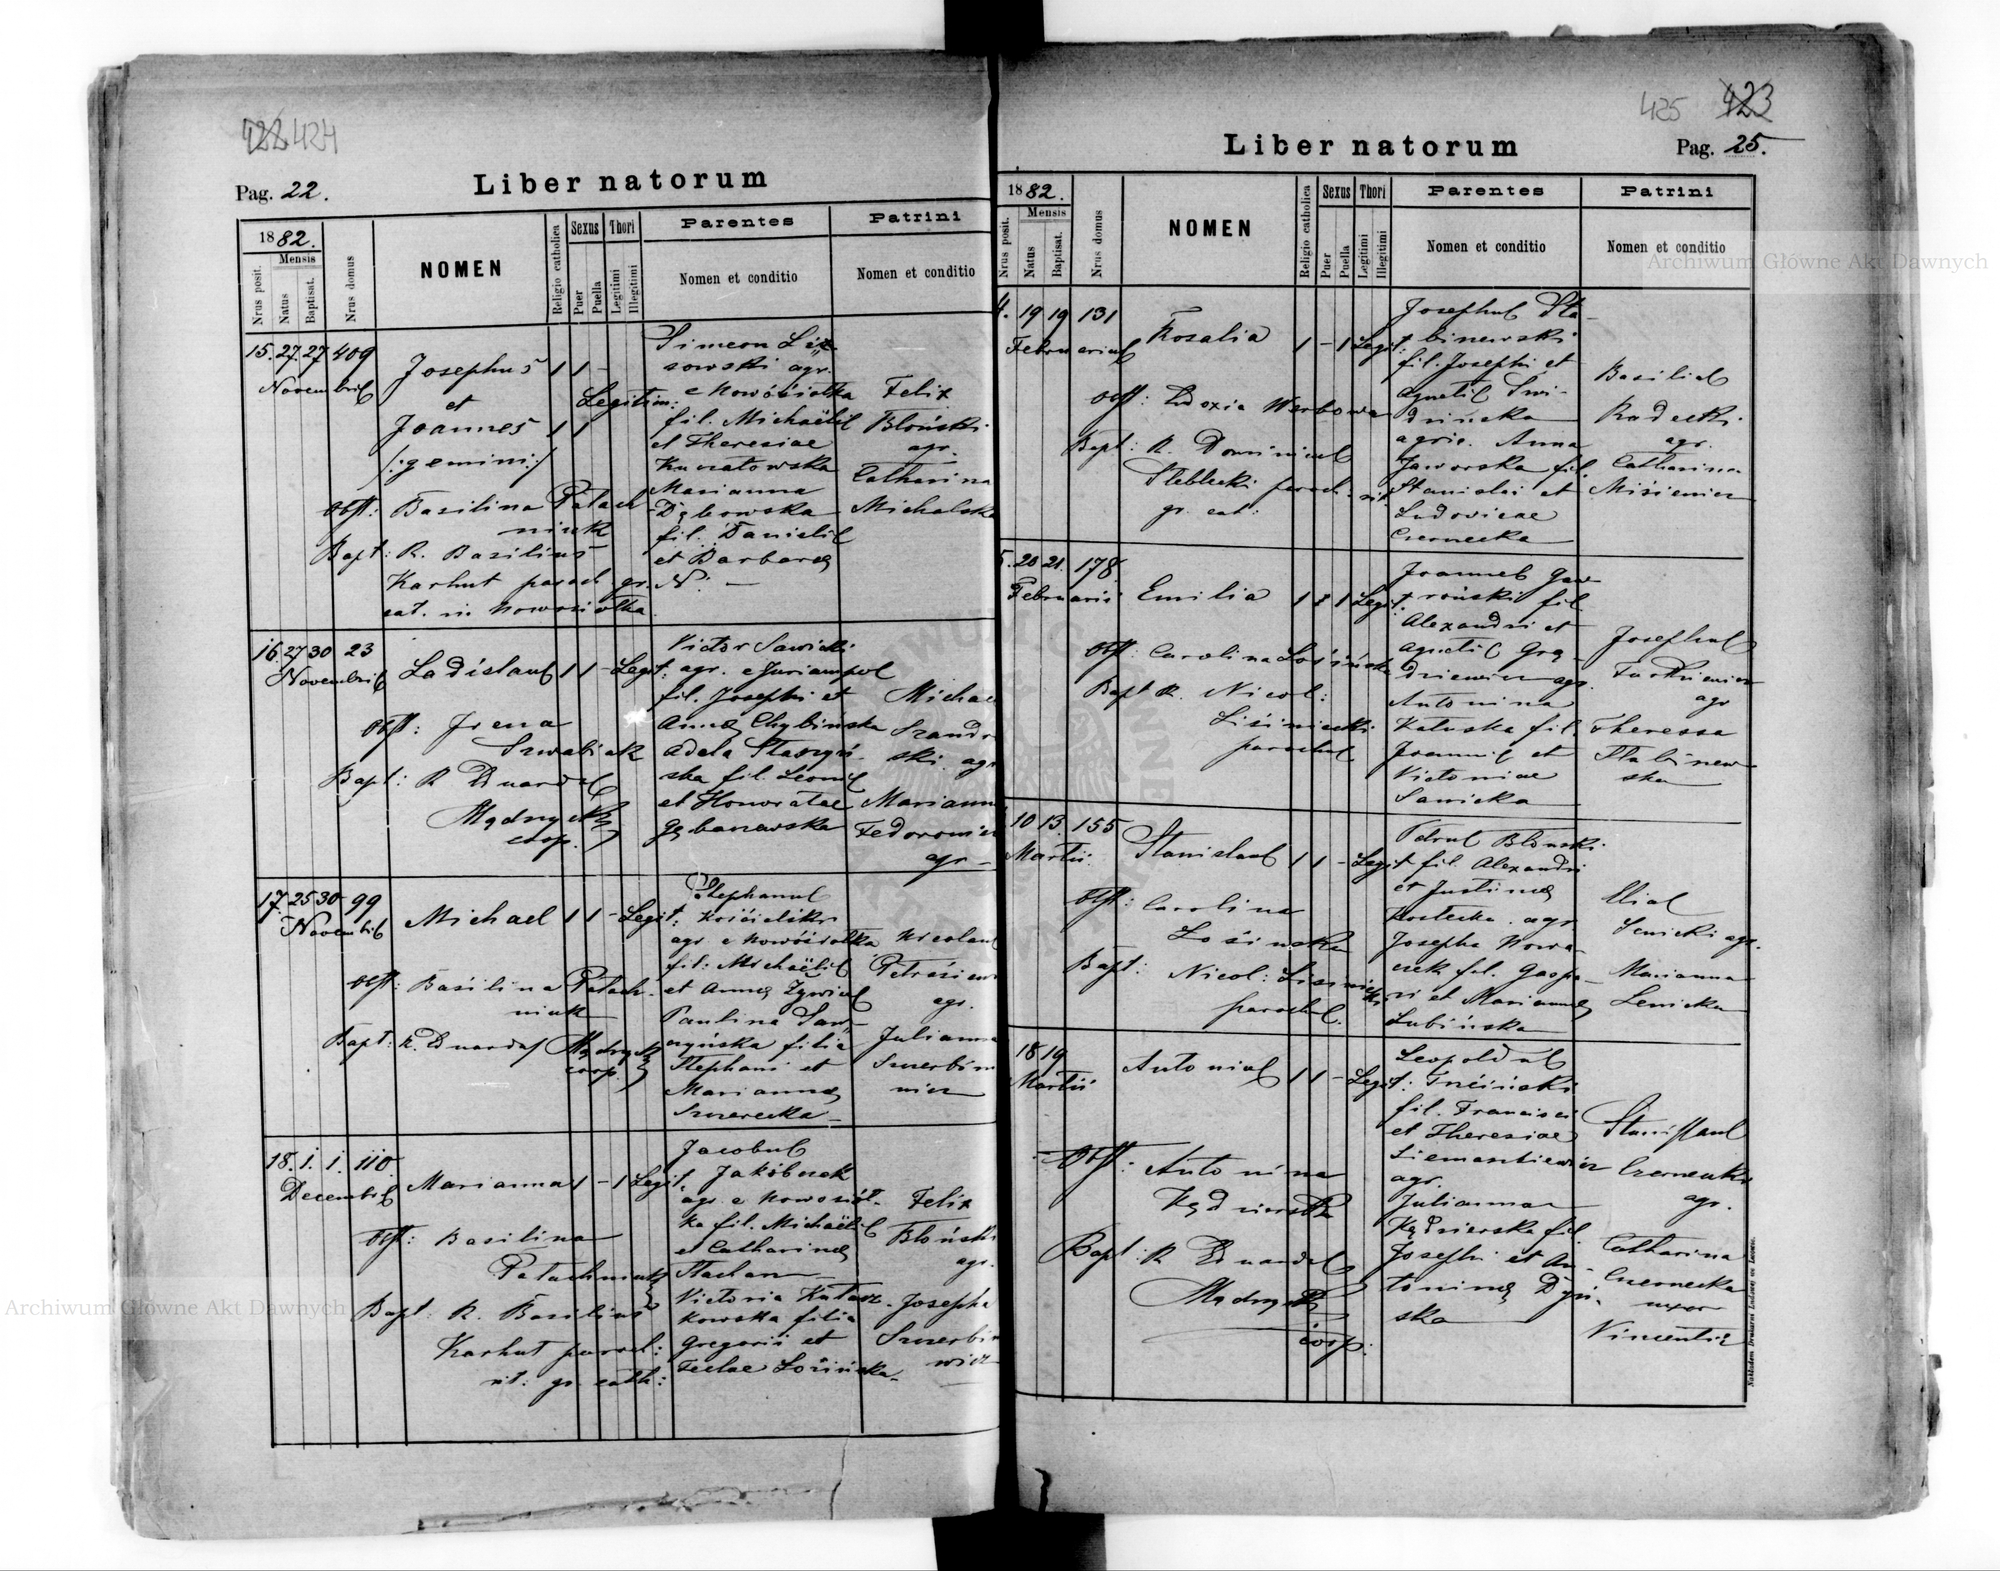 422 424
Pag. 22.
Liber natorum
1882.
Mensis
Nrus posit.
Natus
Baptisat.
Nrus domus
NOMEN
Religio catholica
Sexus
Puer
Puella
Thori
Legitimi
Illegitimi
Parentes
Nomen et conditio
Patrini
Nomen et conditio
15. 27. 27 409
Novembris
Josephus 1 1 -
et
Joannes 1 1
/:gemini:/
Legitim:
Obst: Basilina Patach-
niuk
Bapt: R. Basilius
Karhut paroch. gr.
cat. in Nowosiołka.
Simeon
sowski agr.
e Nowosiołka
fil. Michaëlis
et Theresiae
Kuratowska
Marianna
Dębowska
fil. Danielis
et Barbarae
N: -
Felix
Błoński
agr.
Catharina
Michalska
16. 27 30 23
Novembris
Ladislaus 1 1 - Legit:
Obst: Irena
Szwabiuk
Bapt: R Eduardus
Mądrzyk
coop.
Victor Sawicki
agr. e Juriampol
fil. Josephi et
Annae Chybińska
Adela Starzyń-
ska fil. Leonis
et Honoratae
Gębarzewska
Michae
Szandr
ski agr
Mariann
Fedorowicz
agr -
17. 25 30 99
Novembris
Michael 1 1 - Legit:
Obst: Basilina Patach-
niuk
Bapt: R. Eduardus Mądrzyk
coop.
Stephanus
agr e Nowosiołka
fil: Michaëlis
et Annae
Paulina Saw-
czyńska filia
Stephani et
Mariannae
Szwerecka -
Nicolaus
agr.
Julianna
Szwerbin
wicz
18. 1. 1. 110.
Decembris
Marianna 1 - 1 Legit.
Obst: Basilina
Patachniuk
Bapt: R. Basilius
Karhut paroch:
rit: gr. cath:
Jacobus
Jakóbczak
agr. e Nowosioł-
ka fil. Michaëlis
et Catharinae
Stachan
Victoria
kowska filia
Gregorii et
Teclae Łosińska.
Felix
Błoński
agr.
Josepha
Szwerbin
wicz
425 423
Liber natorum
Pag. 25.
1882.
Mensis
Nrus posit.
Natus
Baptisat.
Nrus domus
NOMEN
Religio catholica
Sexus
Puer
Puella
Thori
Legitimi
Illegitimi
Parentes
Nomen et conditio
Patrini
Nomen et conditio
4. 19 19 131
Februarius
Rosalia 1 - 1 Legit:
Obst: Eudoxia Werbowa
Bapt: R. Dominicus
Steblecki paroch. rit.
gr. cat:
Josephus Sta-
binewski
fil. Josephi et
Agnetis Swi-
drińska
agric. Anna
Jaworska fil.
Stanislai et
Ludovicae
Czernecka
Basilius
Radecki
agr.
Catharina
Misiewicz
5. 20 21. 178.
Februarii
Emilia 1 - 1 Legit:
Obst: Carolina Łosińska
Bapt R. Nicol:
Lisiniecki
parochus
Joannes Gaw-
roński fil
Alexandri et
Agnetis Grę-
dziewicz agr.
Antonina
Kaluska fil.
Joannis et
Victoriae
Sawicka
Josephus
Turkiewicz
agr
Theressa
Stabinew-
ska
10 13. 155
Martii.
Stanislaus 1 1 - Legit
Obst: Carolina
Łosińska
Bapt: Nicol: Lisiniecki
parochus.
Petrus Błonski
fil. Alexandri
et Justinae
Kostecka agr
Josepha Nowa-
czek fil. Gaspa-
ri et Mariannae
Lubińska
Elias
Senicki agr.
Marianna
Lenicka
18 19
Martii
Antonius 1 1 - Legit:
Obst: Antonina
Kędzierska
Bapt: R Eduardus
Mądrzyk
coop:
Leopoldus
Trściński
fil. Francisci
et Theresiae
Siemaszkiewicz
agr.
Julianna
Kędzierska fil.
Josephi et An-
toninae Dyn-
ska
Stanislaus
Czernecki
agr.
Catharina
Czernecka
uxor
Vincentii
Nakładem Drukarni Ludowej we Lwowie.
Archiwum Główne Akt Dawnych
Archiwum Główne Akt Dawnych